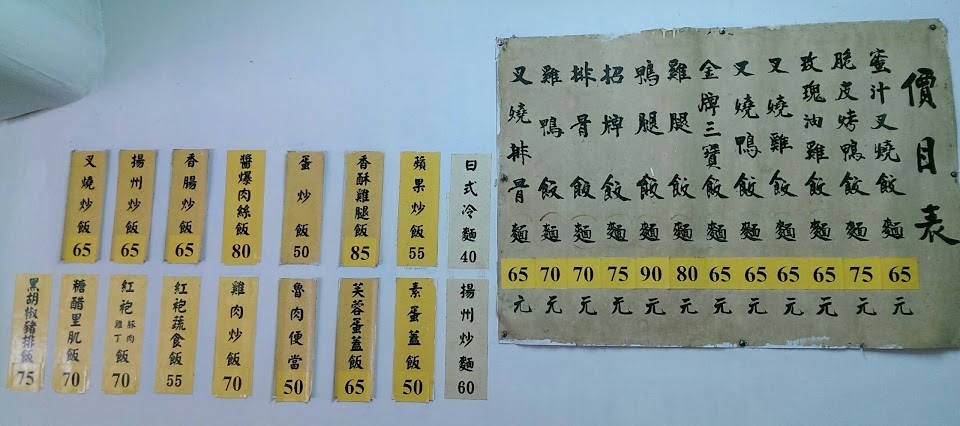 價目表
蜜汁叉燒飯麵65元
脆皮烤鴨飯麵75元
玫瑰油雞飯麵65元
叉燒雞飯麵65元
叉燒鴨飯麵65元
金牌三寶飯麵65元
雞腿飯麵80元
鴨腿飯麵90元
招牌飯麵75元
排骨飯麵70元
雞鴨飯麵70元
叉燒排骨麵65元
日式冷麵40
蘋果炒飯55
香酥雞腿飯85
蛋炒飯50
醬爆肉絲飯80
香腸炒飯65
揚州炒飯65
叉燒炒飯65
揚州炒麵60
素蛋蓋飯50
芙蓉蛋蓋飯65
魯肉便當50
雞肉炒飯70
紅袍蔬食飯55
紅袍豚肉雞丁飯70
糖醋里肌飯70
黑胡椒豬排飯75